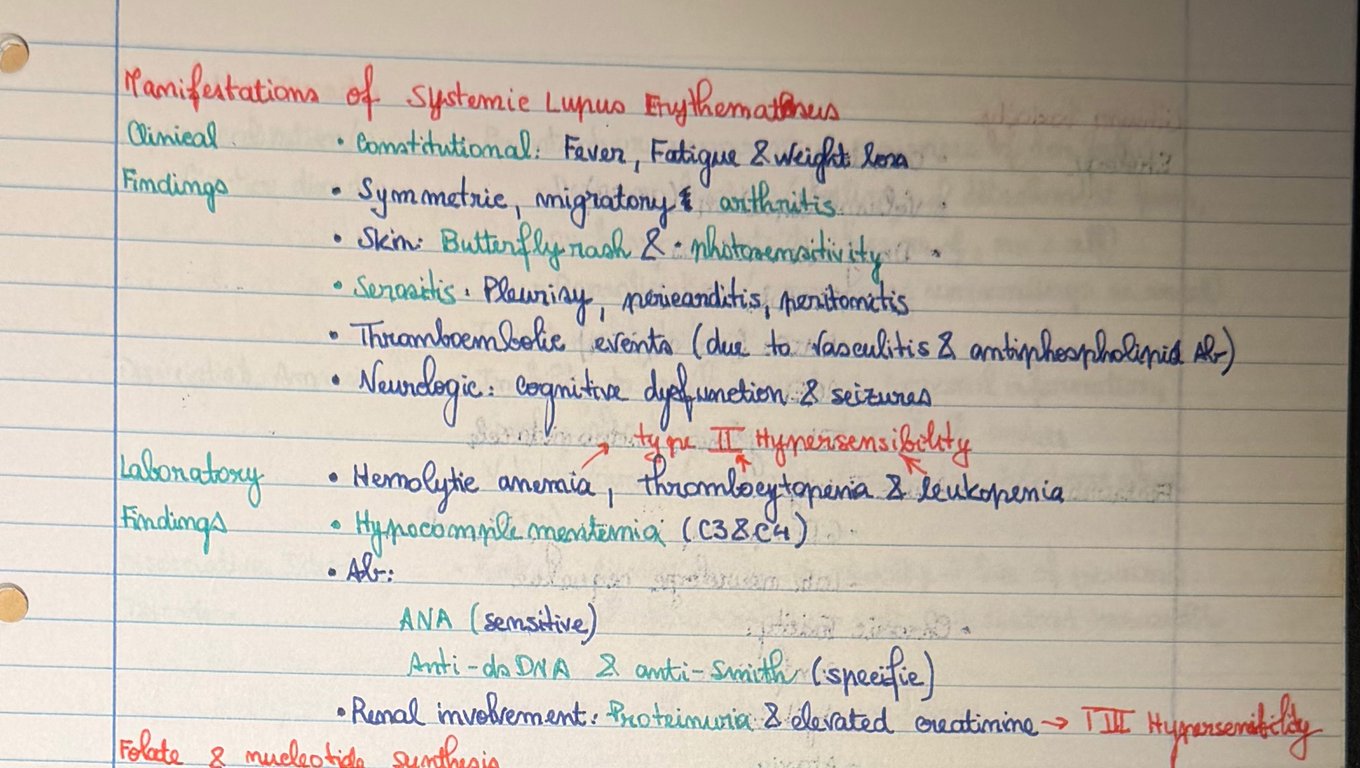 Manifestations of Systemic Lupus Erythematosus
Clinical • Constitutional: Fever, Fatigue & Weight loss
Findings • Symmetric, migratory arthritis
• Skin: Butterfly rash & photosensitivity
• Serositis: Pleurisy, pericarditis, peritonitis
• Thromboembolic events (due to vasculitis & antiphospholipid Ab)
• Neurologic: cognitive dysfunction & seizures
→ type II Hypersensibility
Laboratory • Hemolytic anemia, thrombocytopenia & leukopenia
Findings • Hypocomplementemia (C3&C4)
• Ab:
ANA (sensitive)
Anti-dsDNA & anti-Smith (specific)
• Renal involvement: Proteinuria & elevated creatinine → TIII Hypersensibility
Folate & nucleotide synthesis